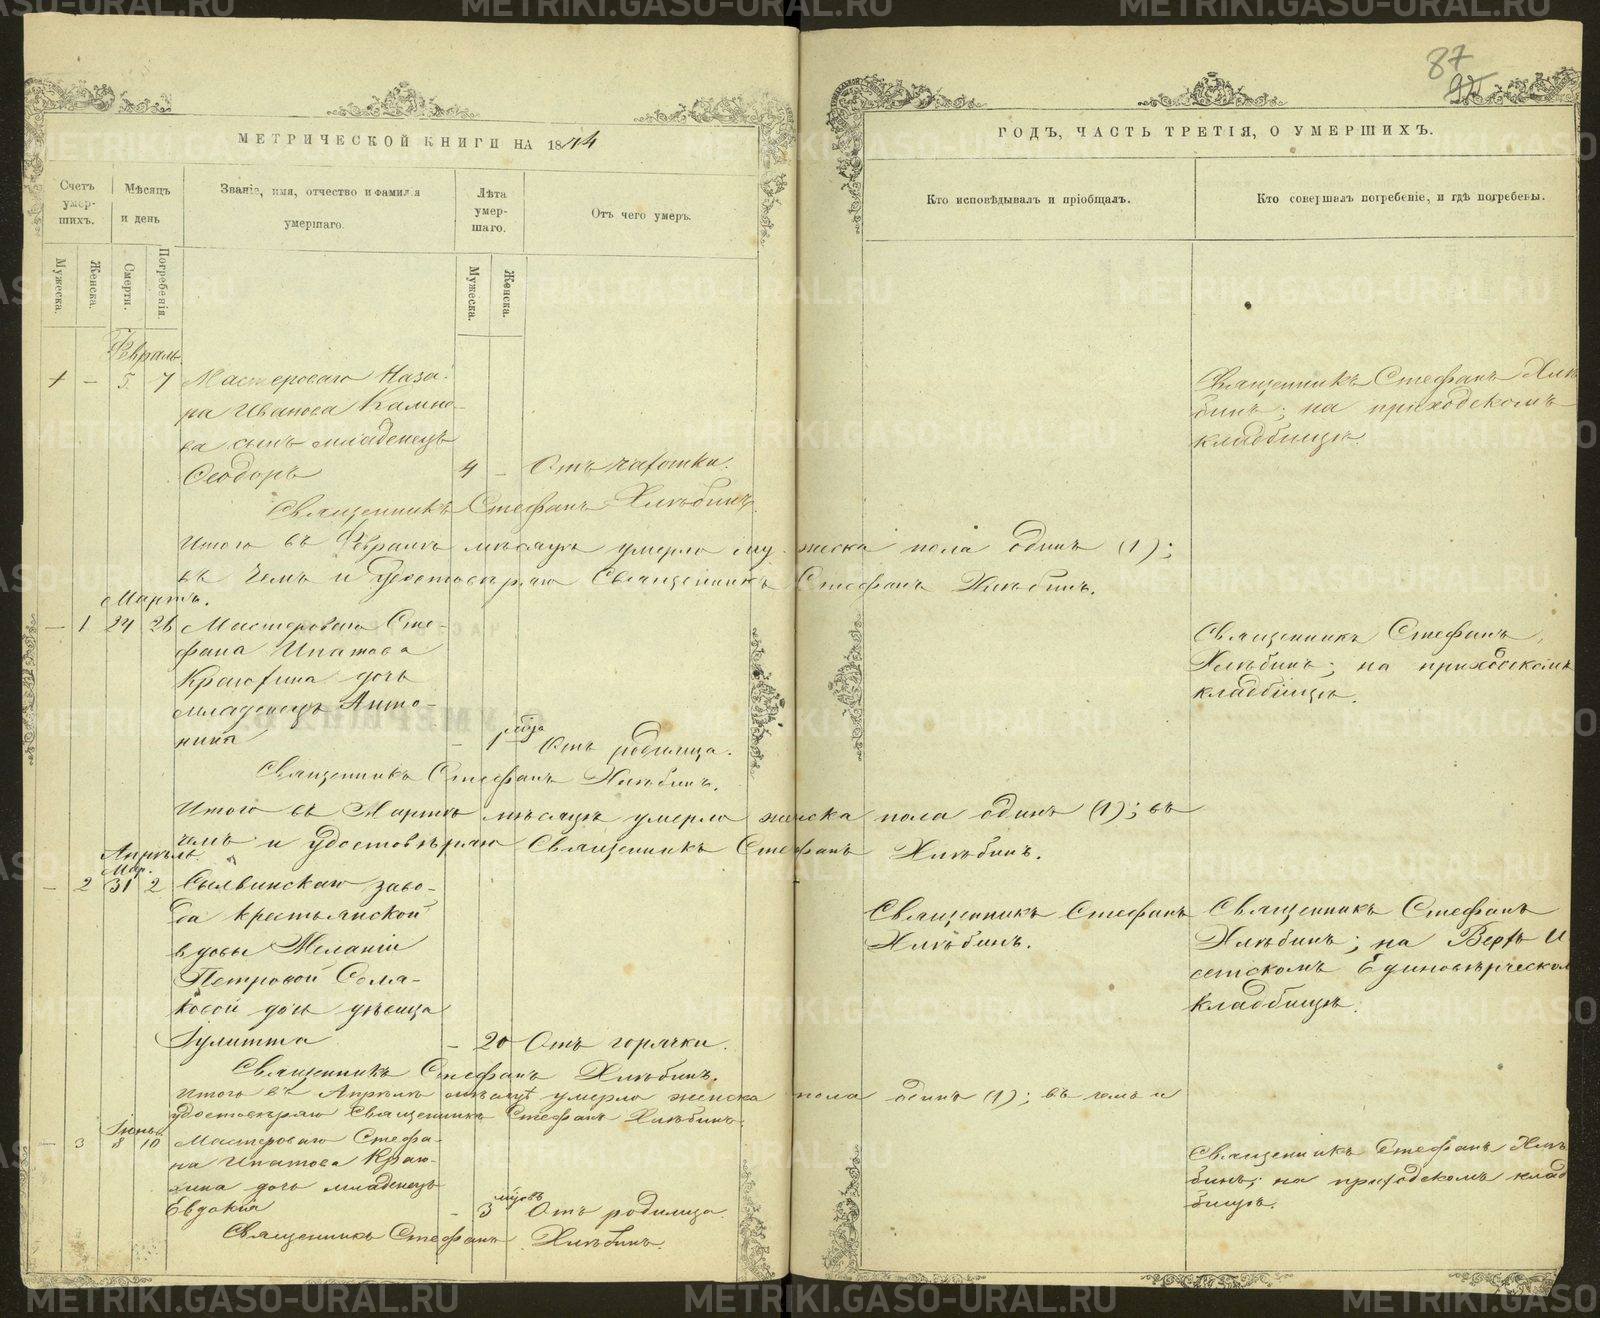 87
МЕТРИЧЕСКОЙ КНИГИ НА 1874
ГОДЪ, ЧАСТЬ ТРЕТІЯ, О УМЕРШИХЪ.
Счетъ умер-шихъ.
Мѣсяцъ и день
Званіе, имя, отчество и фамилія умершаго.
Лѣта умер-шаго.
Отъ чего умеръ.
Кто исповѣдывалъ и пріобщалъ.
Кто совершалъ погребеніе, и гдѣ погребены.
Мужеска.
Женска.
Смерти.
Погребенія.
Мужеска.
Женска.
Февраль
1 — 5 7 Мастероваго Наза-
ра Иванова Камне-
ва сынъ младенецъ
Ѳеодоръ 4 — Отъ чахотки.
Священникъ Стефанъ Хлѣ
бинъ; на приходскомъ
кладбищѣ.
Священникъ Стефанъ Хлѣбинъ.
Итого въ Февралѣ мѣсяцѣ умерло мужеска пола одинъ (1);
въ чемъ и удостовѣряю Священникъ Стефанъ Хлѣбинъ.
Мартъ.
— 1 24 26 Мастероваго Сте-
фана Ипатова
Краюхина дочь
младенецъ Анто-
нина — 1 мѣсяца Отъ родимца.
Священникъ Стефанъ
Хлѣбинъ; на приходскомъ
кладбищѣ.
Священникъ Стефанъ Хлѣбинъ.
Итого въ Мартѣ мѣсяцѣ умерло женска пола одинъ (1); въ
чемъ и удостовѣряю Священникъ Стефанъ Хлѣбинъ.
Апрѣль
Мар.
— 2 31 2 Сылвинскаго заво-
да крестьянской
вдовы Меланіи
Петровой
дочь дѣвица
Іулитта — 20 Отъ горячки.
Священникъ Стефанъ
Хлѣбинъ.
Священникъ Стефанъ
Хлѣбинъ; на Верхъ И
сетскомъ Единовѣрческом
кладбищѣ.
Священникъ Стефанъ Хлѣбинъ.
Итого въ Апрѣлѣ мѣсяцѣ умерло женска пола одинъ (1); въ чемъ и
удостовѣряю Священникъ Стефанъ Хлѣбинъ.
Іюнь
— 3 8 10 Мастероваго Стефа-
на Ипатова Краю-
хина дочь младенецъ
Евдокія — 3 мѣсяцовъ Отъ родимца.
Священникъ Стефанъ Хлѣ
бинъ; на приходскомъ клад
бищѣ.
Священникъ Стефанъ Хлѣбинъ.
METRIKI.GASO-URAL.RU